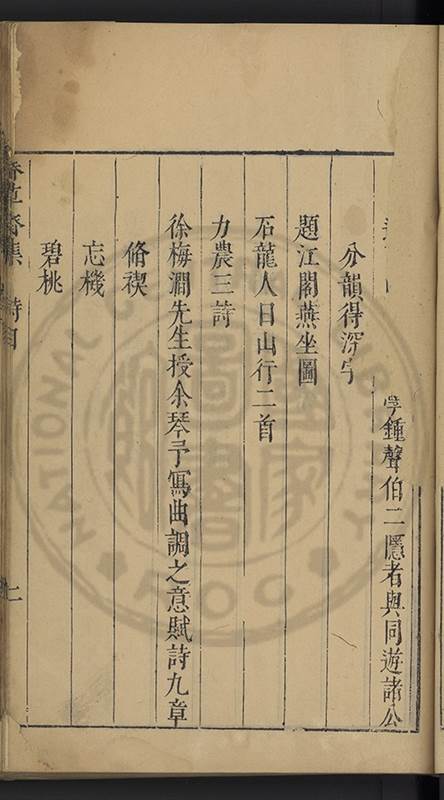 學鍾聲伯二隱者與同遊諸公
分韻得深字
題江閣燕坐圖
石龍人日山行二首
力農三詩
徐梅澗先生授余琴予寫曲調之意賦詩九章
脩禊
忘機
碧桃
草齋集 詩目